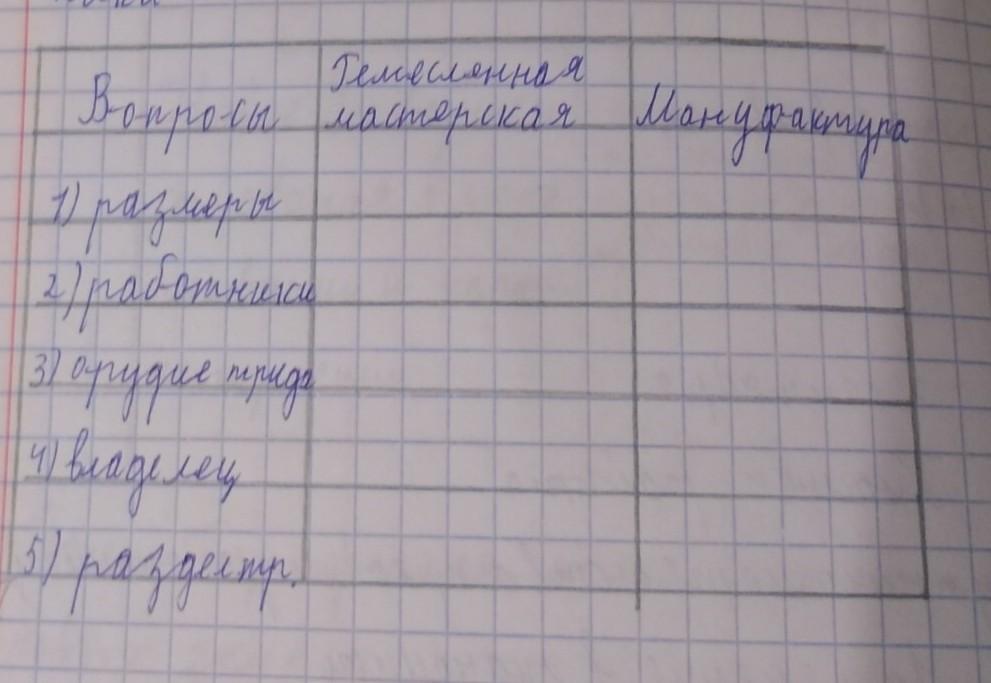 Вопросы
Ремесленная
мастерская
Мануфактура
1) размеры
2) работники
3) орудие труда
4) владелец
5) раздел тр.